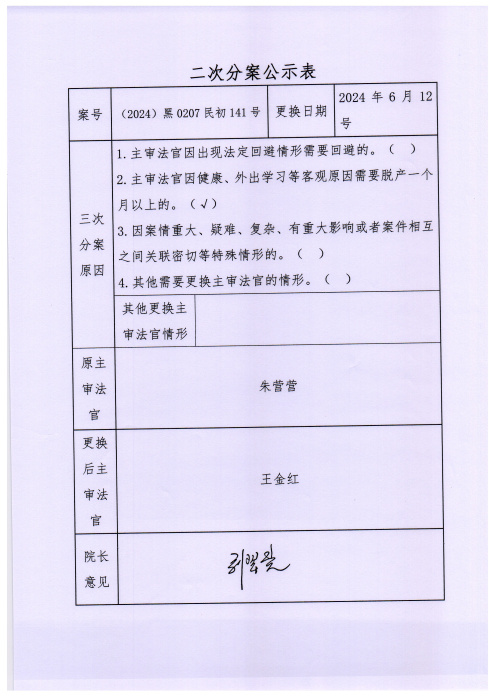 二次分案公示表
案号
（2024）黑 0207 民初 141 号
更换日期
2024 年 6 月 12
号
三次
分案
原因
1.主审法官因出现法定回避情形需要回避的。（ ）
2.主审法官因健康、外出学习等客观原因需要脱产一个
月以上的。（√）
3.因案情重大、疑难、复杂、有重大影响或者案件相互
之间关联密切等特殊情形的。（ ）
4.其他需要更换主审法官的情形。（ ）
其他更换主
审法官情形
原主
审法
官
朱营营
更换
后主
审法
官
王金红
院长
意见